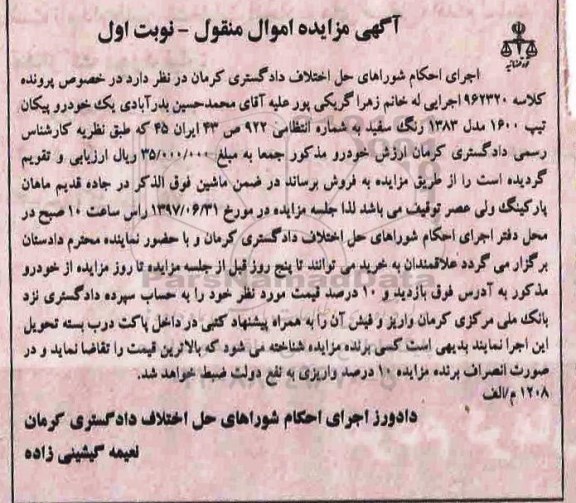 آگهی مزایده اموال منقول - نوبت اول
اجرای احکام شوراهای حل اختلاف دادگستری کرمان در نظر دارد در خصوص پرونده
کلاسه ۹۶۲۳۲۰ اجرایی له خانم زهرا گریکی پور علیه آقای محمدحسین بدرآبادی یک خودرو پیکان
تیپ ۱۶۰۰ مدل ۱۳۸۳ رنگ سفید به شماره انتظامی ۹۲۲ ص ۴۳ ایران ۴۵ که طبق نظریه کارشناس
رسمی دادگستری کرمان ارزش خودرو مذکور جمعا به مبلغ ۳۵/۰۰۰/۰۰۰ ریال ارزیابی و تقویم
گردیده است را از طریق مزایده به فروش برساند در ضمن ماشین فوق الذکر در جاده قدیم ماهان
پارکینگ ولی عصر توقیف می باشد لذا جلسه مزایده در مورخ ۱۳۹۷/۰۶/۳۱ راس ساعت ۱۰ صبح در
محل دفتر اجرای احکام شوراهای حل اختلاف دادگستری کرمان و با حضور نماینده محترم دادستان
برگزار می گردد علاقمندان به خرید می توانند تا پنج روز قبل از جلسه مزایده تا روز مزایده از خودرو
مذکور به آدرس فوق بازدید و ۱۰ درصد قیمت مورد نظر خود را به حساب سپرده دادگستری نزد
بانک ملی مرکزی کرمان واریز و فیش آن را به همراه پیشنهاد کتبی در داخل پاکت درب بسته تحویل
این اجرا نمایند بدیهی است کسی برنده مزایده شناخته می شود که بالاترین قیمت را تقاضا نماید و در
صورت انصراف برنده مزایده ۱۰ درصد واریزی به نفع دولت ضبط خواهد شد.
۱۲۰۸ م/الف
دادورز اجرای احکام شوراهای حل اختلاف دادگستری کرمان
نعیمه گیشینی زاده
ParsNamadData